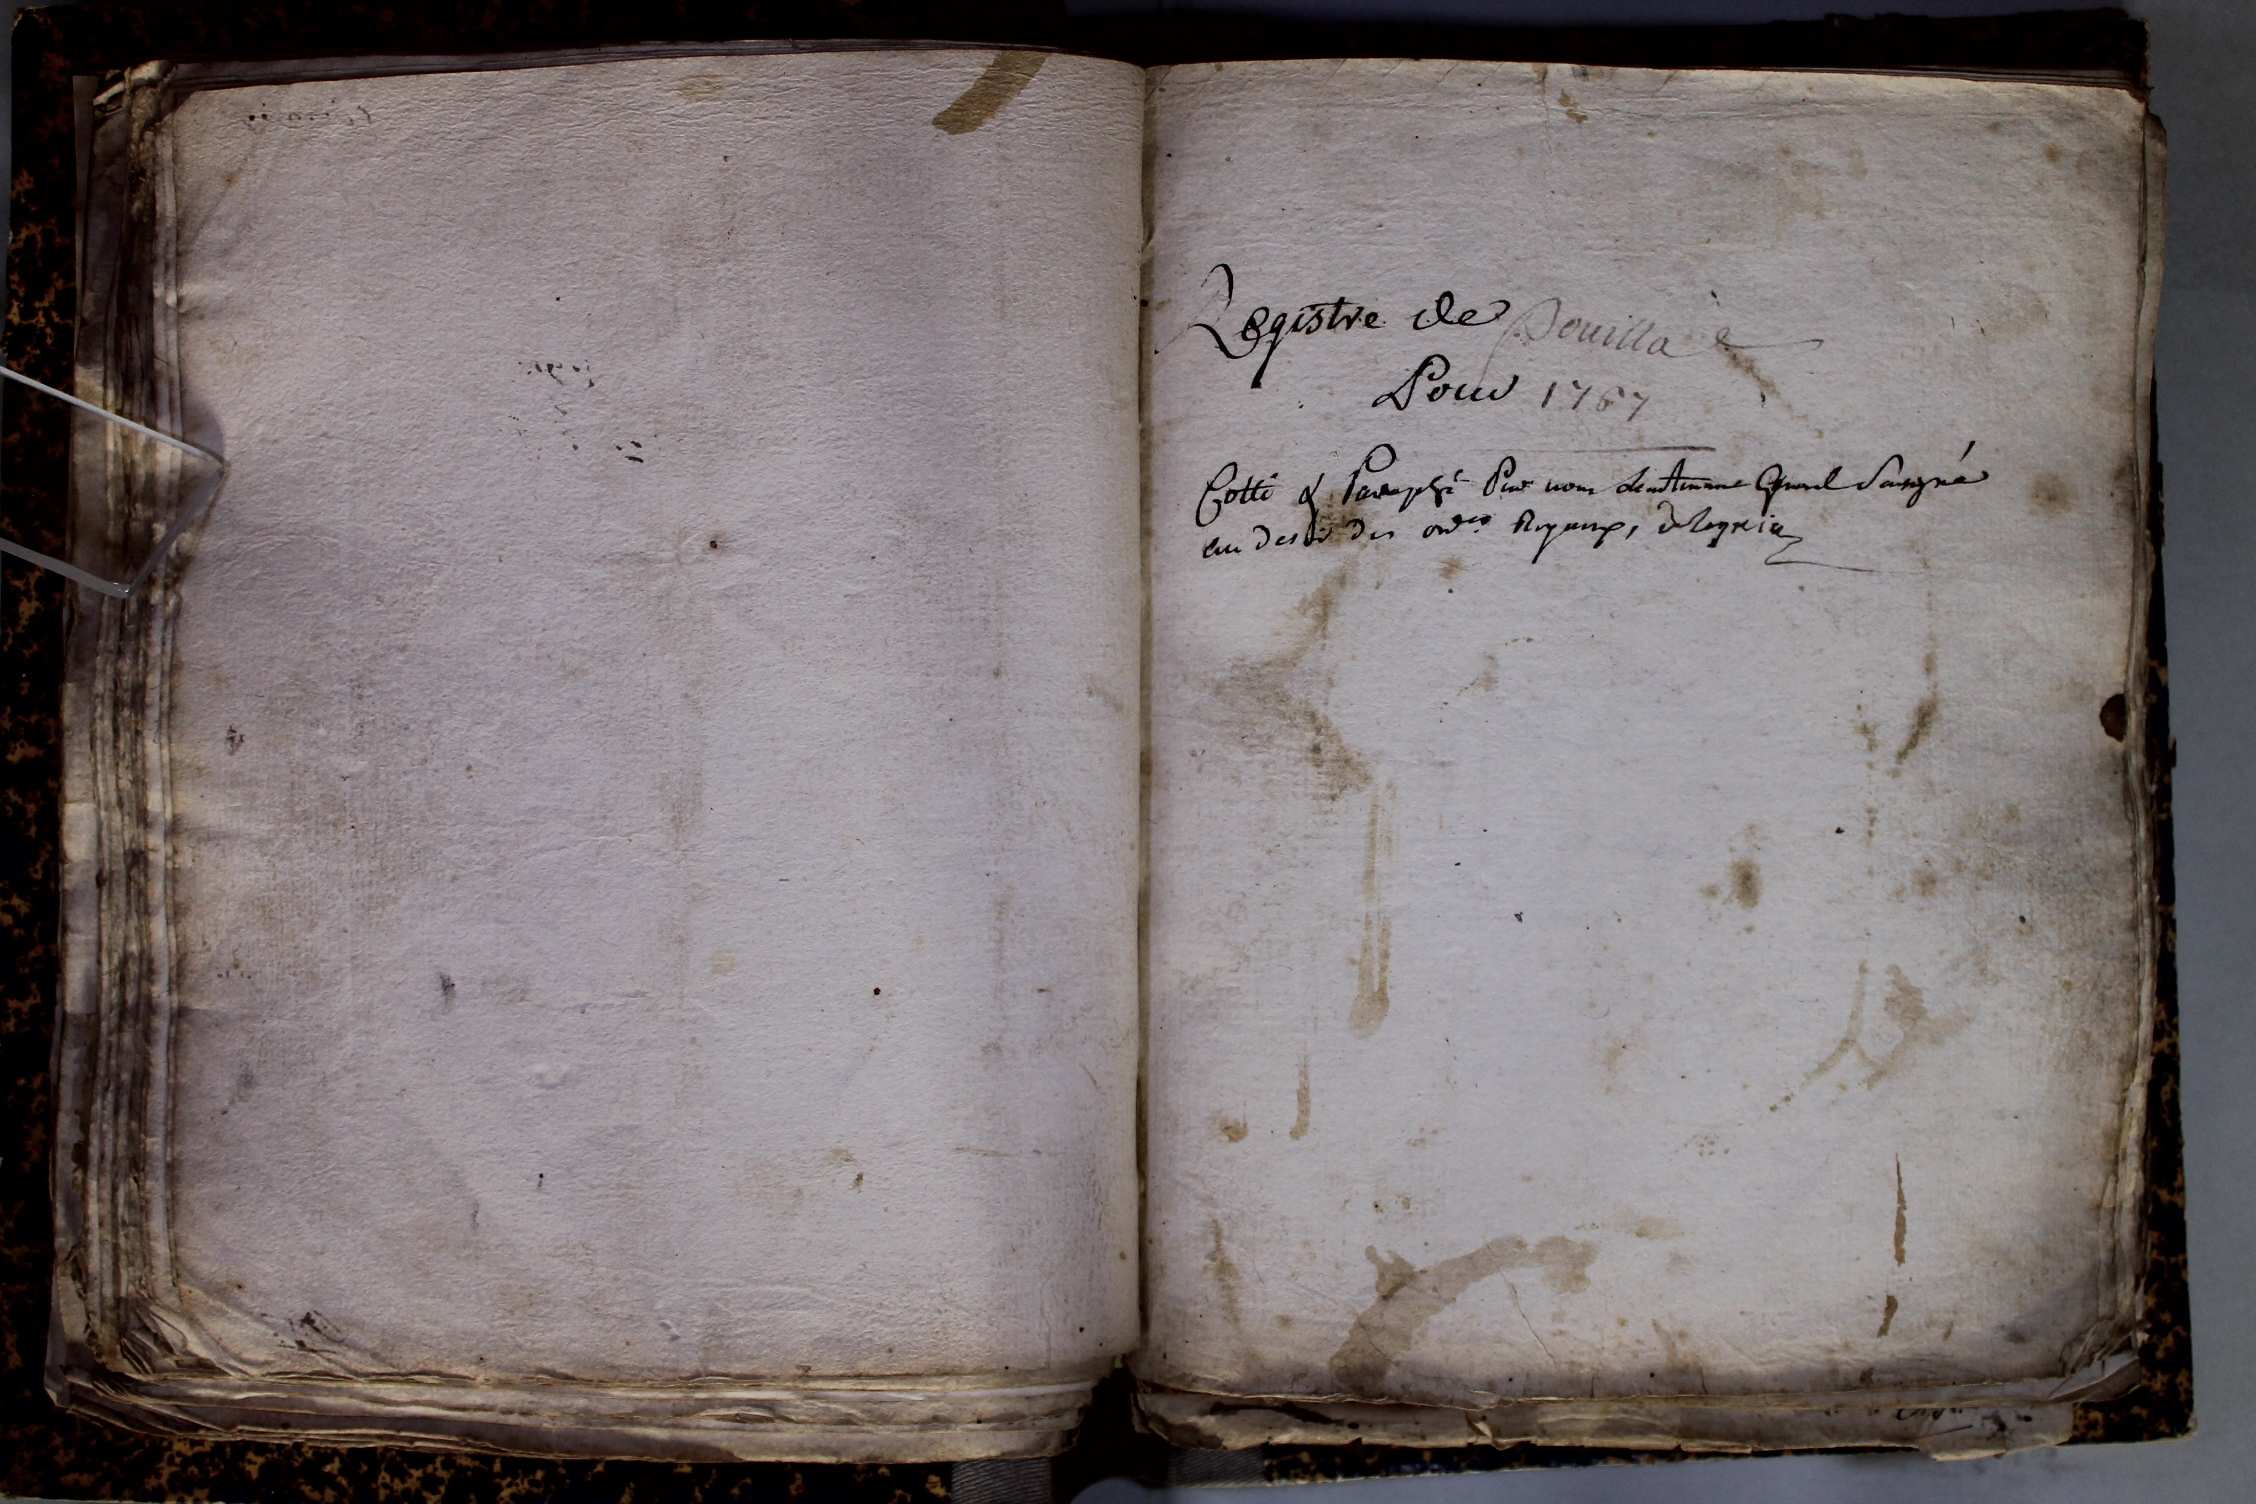 Registre de Pouillac
Pour 1767
Cotté & Paraphé Par nous Lieutenant Général Soussigné
en des ord.ces Royaux,